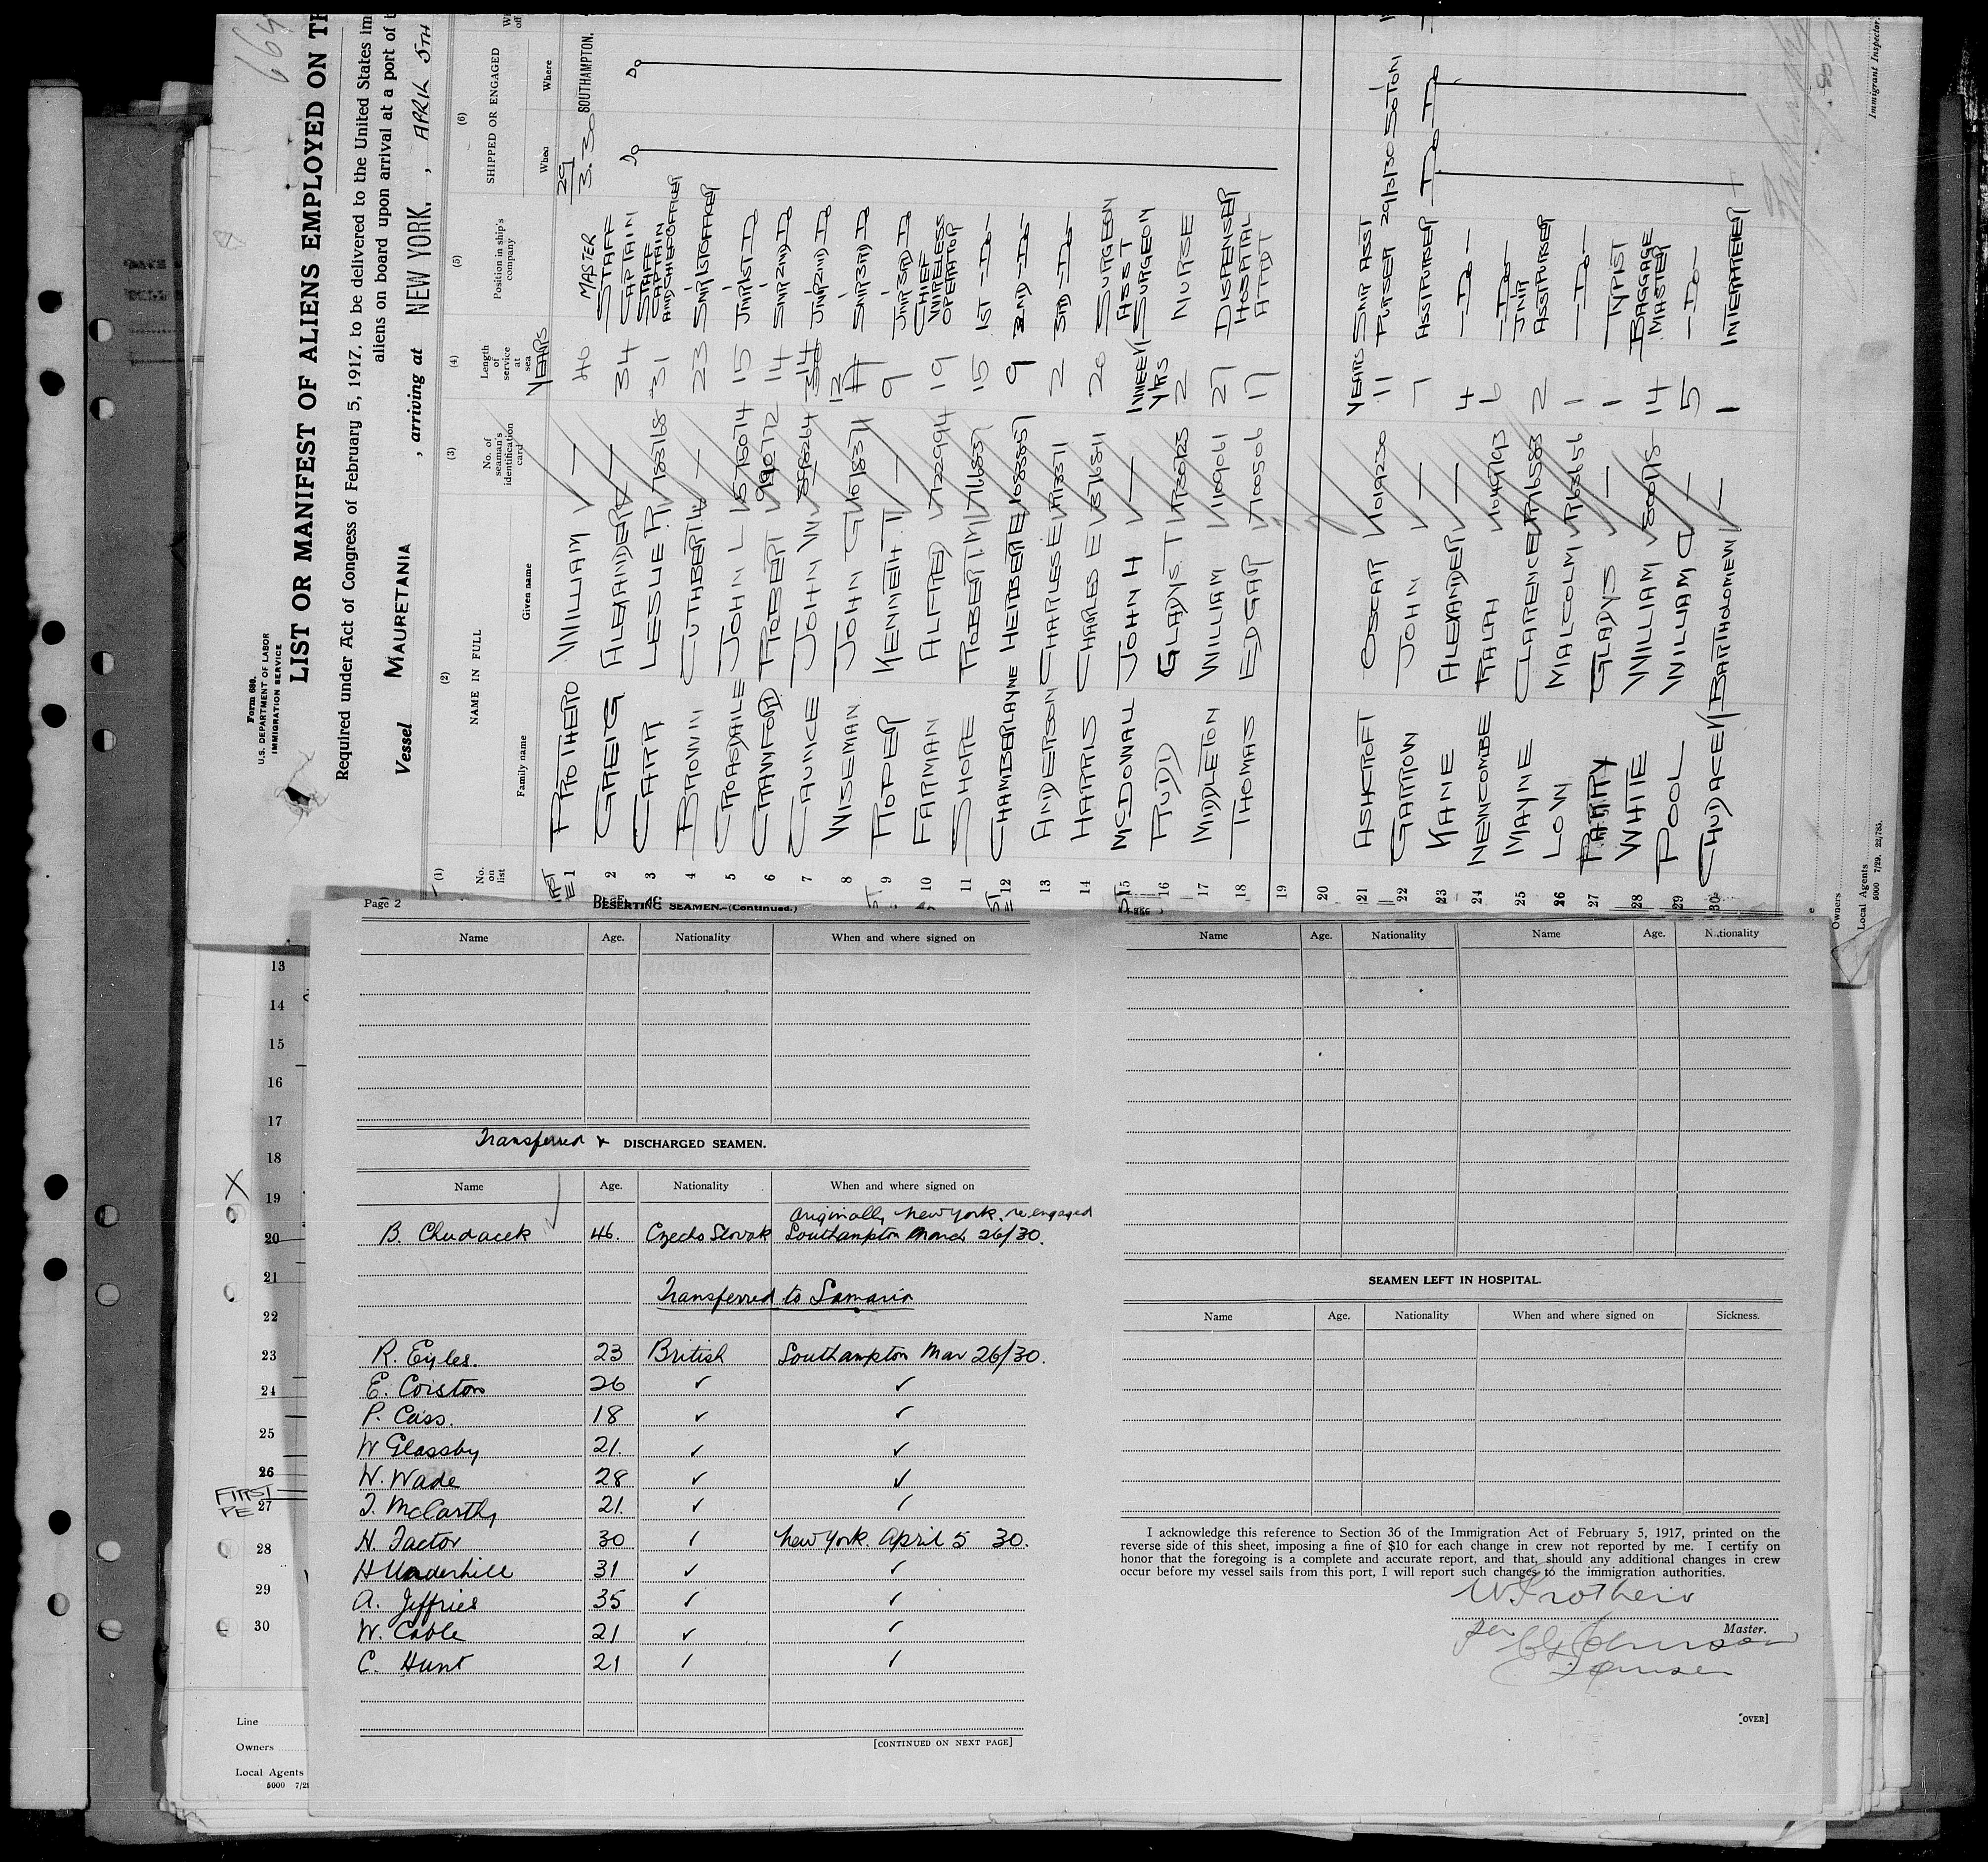 Form 689.
U.S. DEPARTMENT OF LABOR
IMMIGRATION SERVICE
LIST OR MANIFEST OF ALIENS EMPLOYED ON TH
Required under Act of Congress of February 5, 1917, to be delivered to the United States im
aliens on board upon arrival at a port of t
Vessel MAURETANIA , arriving at NEW YORK. , APRIL 5TH
(1) (2) (3) (4) (5) (6)
No. on list NAME IN FULL No. of seaman's identification card Length of service at sea Position in ship's company SHIPPED OR ENGAGED
Family name Given name When Where
YEARS
1 PROTHERO WILLIAM — 40 MASTER 29 3.30 SOUTHAMPTON.
2 GREIG ALEXANDER — 34 STAFF CAPTAIN Do Do
3 CARR LESLIE R 783768 31 STAFF CAPTAIN AND CHIEF OFFICER
4 BROWN CUTHBERT — 23 SNR 1ST OFFICER
5 CROASDAILE JOHN L 15 JNR 1ST DO
6 CRAWFORD ROBERT 990772 14 SNR 2ND DO
7 CAUNCE JOHN W 14 JNR 2ND DO
8 WISEMAN JOHN G 12 SNR 3RD DO
9 ROPER KENNETH T — 9 JNR 3RD DO
10 FARMAN ALFRED 722994 19 CHIEF WIRELESS OPERATOR
11 SHORE ROBERT M 15 1ST -DO-
12 CHAMBERLAYNE HERBERT E 9 2ND -DO-
13 ANDERSON CHARLES E 2 3RD -DO-
14 HARRIS CHARLES E 20 SURGEON
15 MCDOWALL JOHN H — 1 WEEK ASST SURGEON
16 RUDD GLADYS. T YRS 2 NURSE
17 MIDDLETON WILLIAM 1109061 27 DISPENSER
18 THOMAS EDGAR 1100506 17 HOSPITAL ATTDT
19
20
21 ASHCROFT OSCAR 1019230 YEARS 11 SNR ASST PURSER 29/3/30 SOTON
22 GARROW JOHN — 7 ASST PURSER DO DO
23 KANE ALEXANDER — 4 -DO-
24 NEWCOMBE RALPH 1049793 6 -DO-
25 MAYNE CLARENCE 2 JNR ASST PURSER
26 LOW MALCOLM 1 -DO-
27 PARRY GLADYS — 1 TYPIST
28 WHITE WILLIAM 14 BAGGAGE MASTER
29 POOL WILLIAM — 5 -DO-
30 CHUDACEK BARTHOLOMEW — 1 INTERPRETER
Owners
Local Agents
5000 7/29. 22,785.
Immigrant Inspector.
Page 2
DESERTING SEAMEN.—(Continued.)
Name Age. Nationality When and where signed on
Transferred & DISCHARGED SEAMEN.
Name Age. Nationality When and where signed on
Originally New York, re engaged
B. Chudacek 46. Czecho Slovak Southampton March 26/30.
Transferred to Samaria
R. Eyles. 23 British Southampton Mar 26/30.
E. Coiston 26 ✓ ✓
P. Cass. 18 ✓ ✓
W Glassby 21. ✓ ✓
W. Wade 28 ✓ ✓
J. McCarthy 21. ✓ ✓
H. Factor 30 ✓ New York. April 5 30.
H Underhill 31 ✓ ✓
A. Jeffries 35 ✓ ✓
W. Cable 21 ✓ ✓
C. Hunt 21 ✓ ✓
[CONTINUED ON NEXT PAGE]
Name Age. Nationality Name Age. Nationality
SEAMEN LEFT IN HOSPITAL.
Name Age. Nationality When and where signed on Sickness.
I acknowledge this reference to Section 36 of the Immigration Act of February 5, 1917, printed on the
reverse side of this sheet, imposing a fine of $10 for each change in crew not reported by me. I certify on
honor that the foregoing is a complete and accurate report, and that, should any additional changes in crew
occur before my vessel sails from this port, I will report such changes to the immigration authorities.
W Prothero
Master.
per
[OVER]
13
14
15
16
17
18
X
19
20
21
22
23
24
25
26
FIRST
PE 27
28
29
30
Line
Owners
Local Agents
5000 7/29